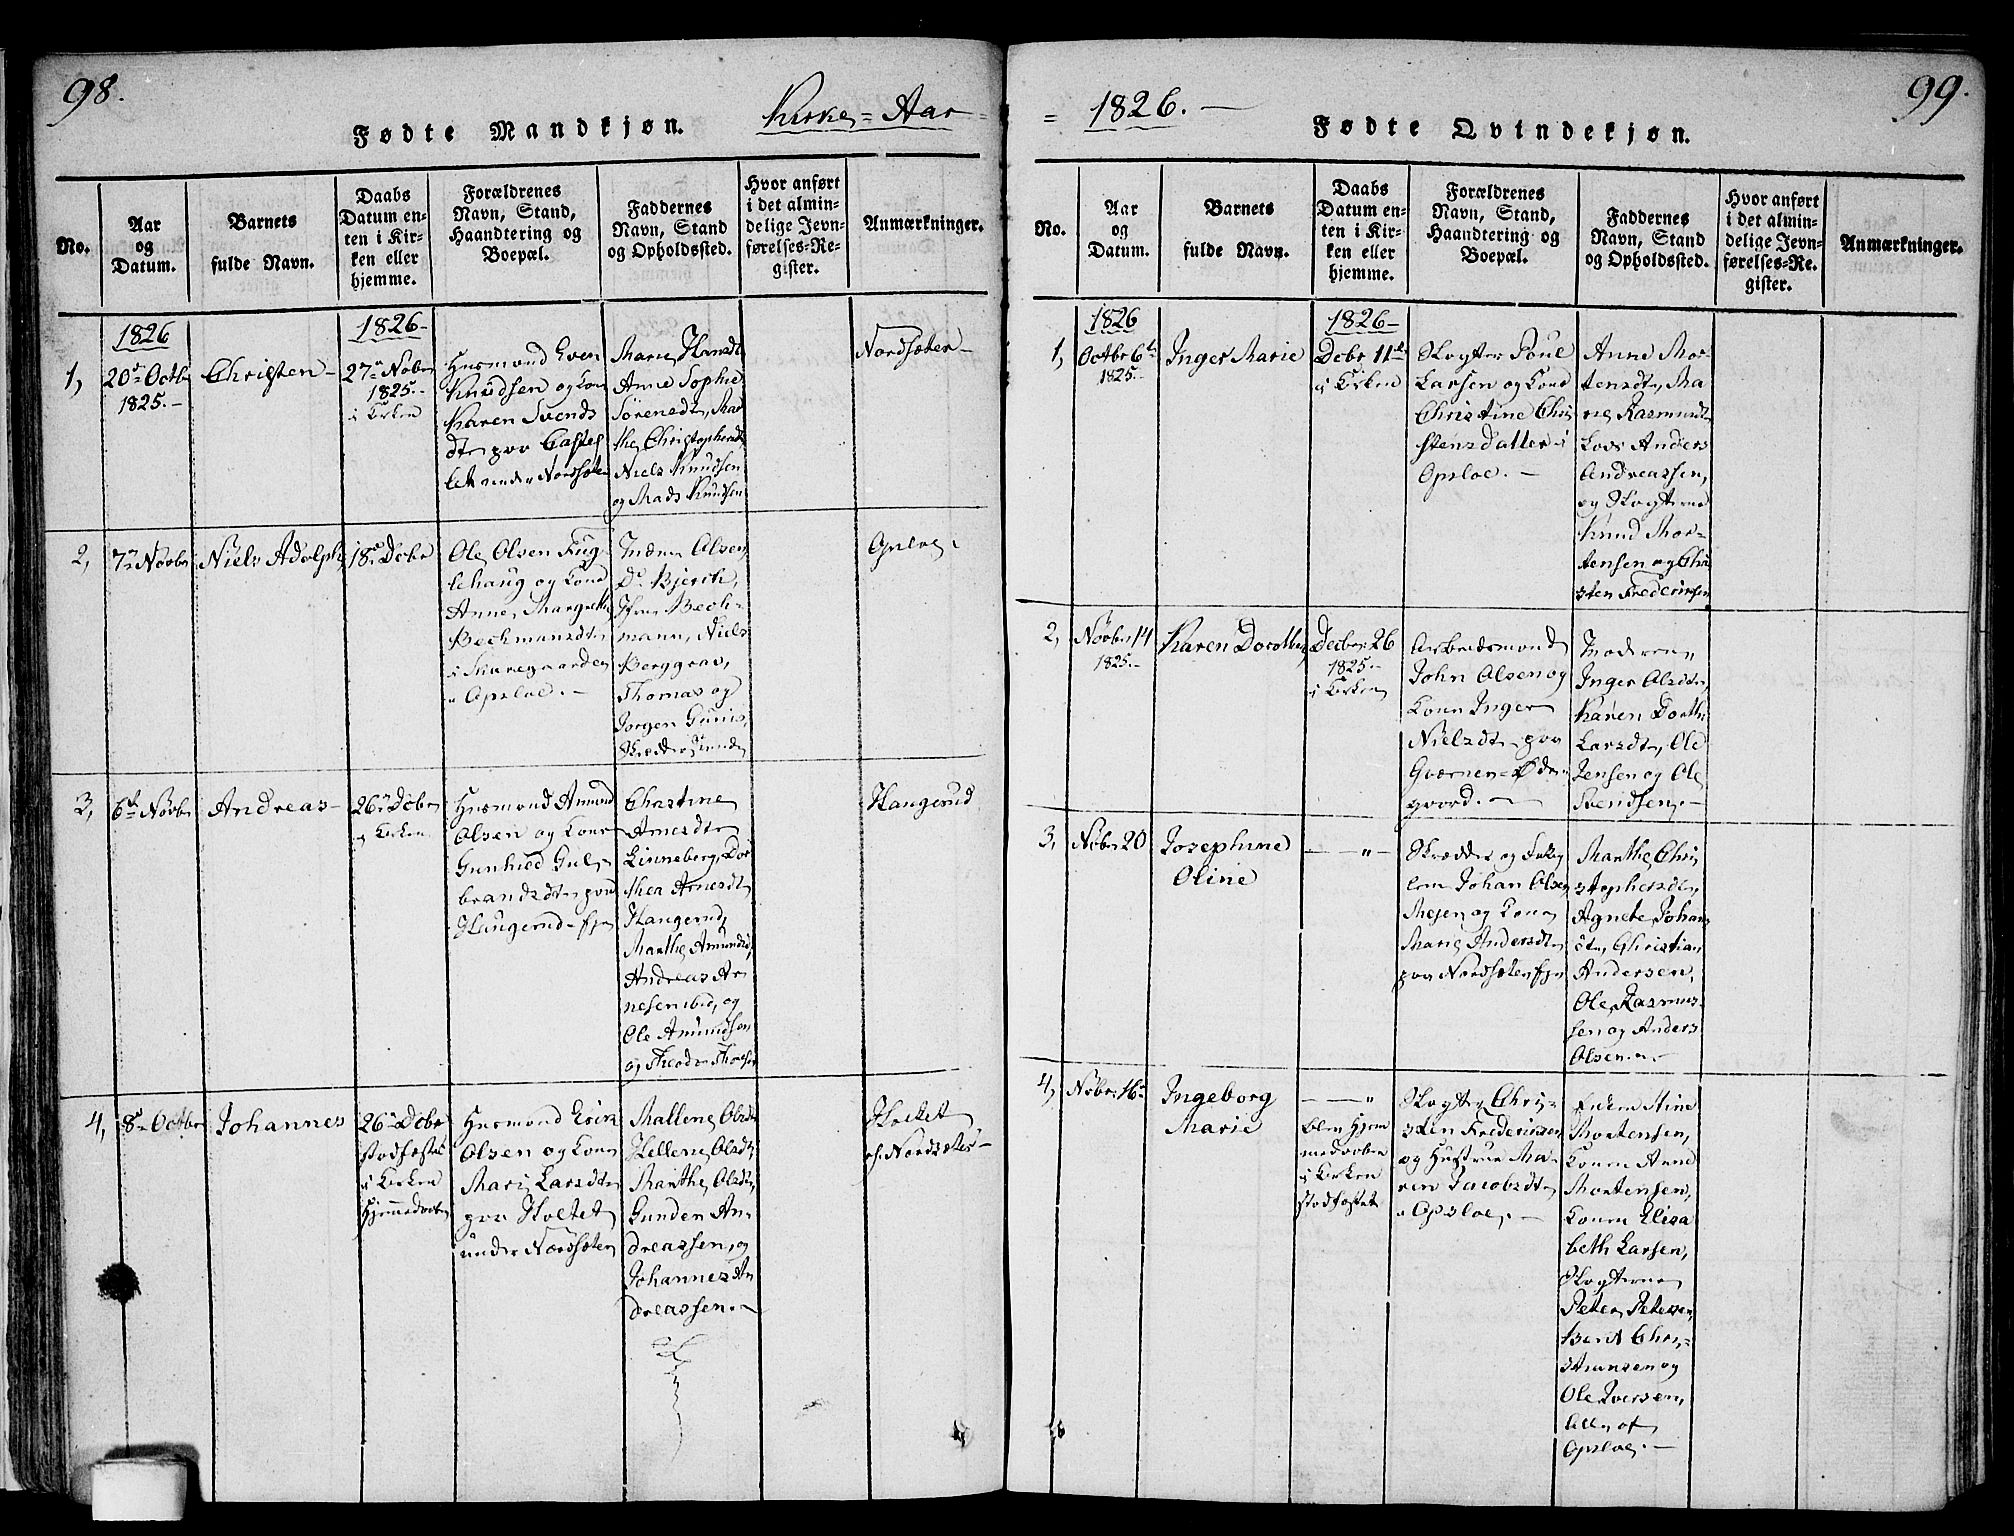 98.
Kirke = Aar =
Fødte Mandkjøn.
No.
Aar
og
Datum.
Barnets
fulde Navn.
Daabs
Datum en-
ten i Kir-
ken eller
hjemme.
Forældrenes
Navn, Stand,
Haandtering og
Boepæl.
Faddernes
Navn, Stand
og Opholdssted.
Hvor anført
i det almin-
delige Jevn-
førelses-Re-
gister.
Anmærkninger.
1826
1826-
1,
20de Octbr
1825.-
Christen-
27de Novbr
1825.-
i Kirken
Huusmand Even
Knudsen og Kone
Karen Svends
dtr paa Castel
let under Nordsæter
Anne Sophie
Sørensdtr, Mar
the Christophersdtr
Niels Knudsen
og Mads Knudsen
Nordsæter-
2,
7de Novbr
Niels Adolph
18de Decbr
Ole Olsen Fug
lehaug og Kone
Anne Margrethe
Bechmansdtr
i Opsloe.-
Olsen,
Do Bjerch,
Jfru Bech-
mann, Niels
Berggrav,
Thomas og
Jørgen
Opsloe.
3,
6te Novbr
Andreas-
26de Decbr
i Kirken
Huusmand Amund
Olsen og Kone
Gunhild Gul-
brandsdtr paa
Haugerud-
Christine
Arnesdtr
Linneberg, Dor
thea Arnesdtr
Haugerud,
Marthe Amundsd,
Andreas Ar
nesen ibid, og
Ole Amundsen
og
Haugerud
4,
8de Octbr
Johannes
26de Decbr
stadfæstet
i Kirken
Hjemmedøbt
Huusmand Erik
Olsen og Kone
Mari Larsdtr
paa Holtet
under Nordsæter
Mallene Olsdtr
Hellene Olsdtr,
Marthe Olsdtr,
Gunder An-
dreassen, og
Johannes An
dreassen.-
Holtet
Nordsæter-
99.
= 1826.-
Fødte Qvindekjøn.
No.
Aar
og
Datum.
Barnets
fulde Navn.
Daabs
Datum en-
ten i Kir-
ken eller
hjemme.
Forældrenes
Navn, Stand,
Haandtering og
Boepæl.
Faddernes
Navn, Stand
og Opholdssted.
Hvor anført
i det almin-
delige Jevn-
førelses-Re-
gister.
Anmærkninger.
1826
1826-
1,
Octbr 6te
1825.-
Inger Marie
Decbr 11te
i Kirken
Slagter Poul
Larsen og Kone
Christine Chri
stensdatter i
Opsloe.-
Anne Mor-
tensdtr, Ma
rie Rasmusdtr
Anders
Andreassen,
og Slagterne
Knud Mor-
tensen og Chri
sten Fredericksen
2,
Novbr 14
1825.-
Karen Dorothea
Decbr 26
1825.-
i Kirken
Arbeidsmand
John Olsen og
Kone Inger
Nielsdtr paa
Qværner=Øde
gaard.-
Moderen
Inger Olsdtr,
Karen Dorthe
Larsdtr, Ole
Jensen og Ole
Svendsen.-
3,
Novbr 20
Josephine
Oline
Skrædder og
Johan Olsen
og Kone
Marie Andersdtr
paa Nordsæter
Marthe Chri
stophersdtr,
Agnete Johans
dtr, Christian
Andersen,
Ole Rasmus-
sen og Anders
Olsen.-
4,
Novbr 16de
Ingeborg
Marie
blev Hjem
medøbt
i Kirken
stadfæstet
Slagter Chri-
sten Fredericksen
og Hustrue Ma-
ren Jacobsdtr
i Opsloe.-
Enken Stine
Mortensen,
Konen Anne
Mortensen,
Konen Elisa
beth Larsen,
Slagterne
Peter Petersen,
Berit Chri-
stiansen og
Ole Iversen,
alle af
Opsloe.-